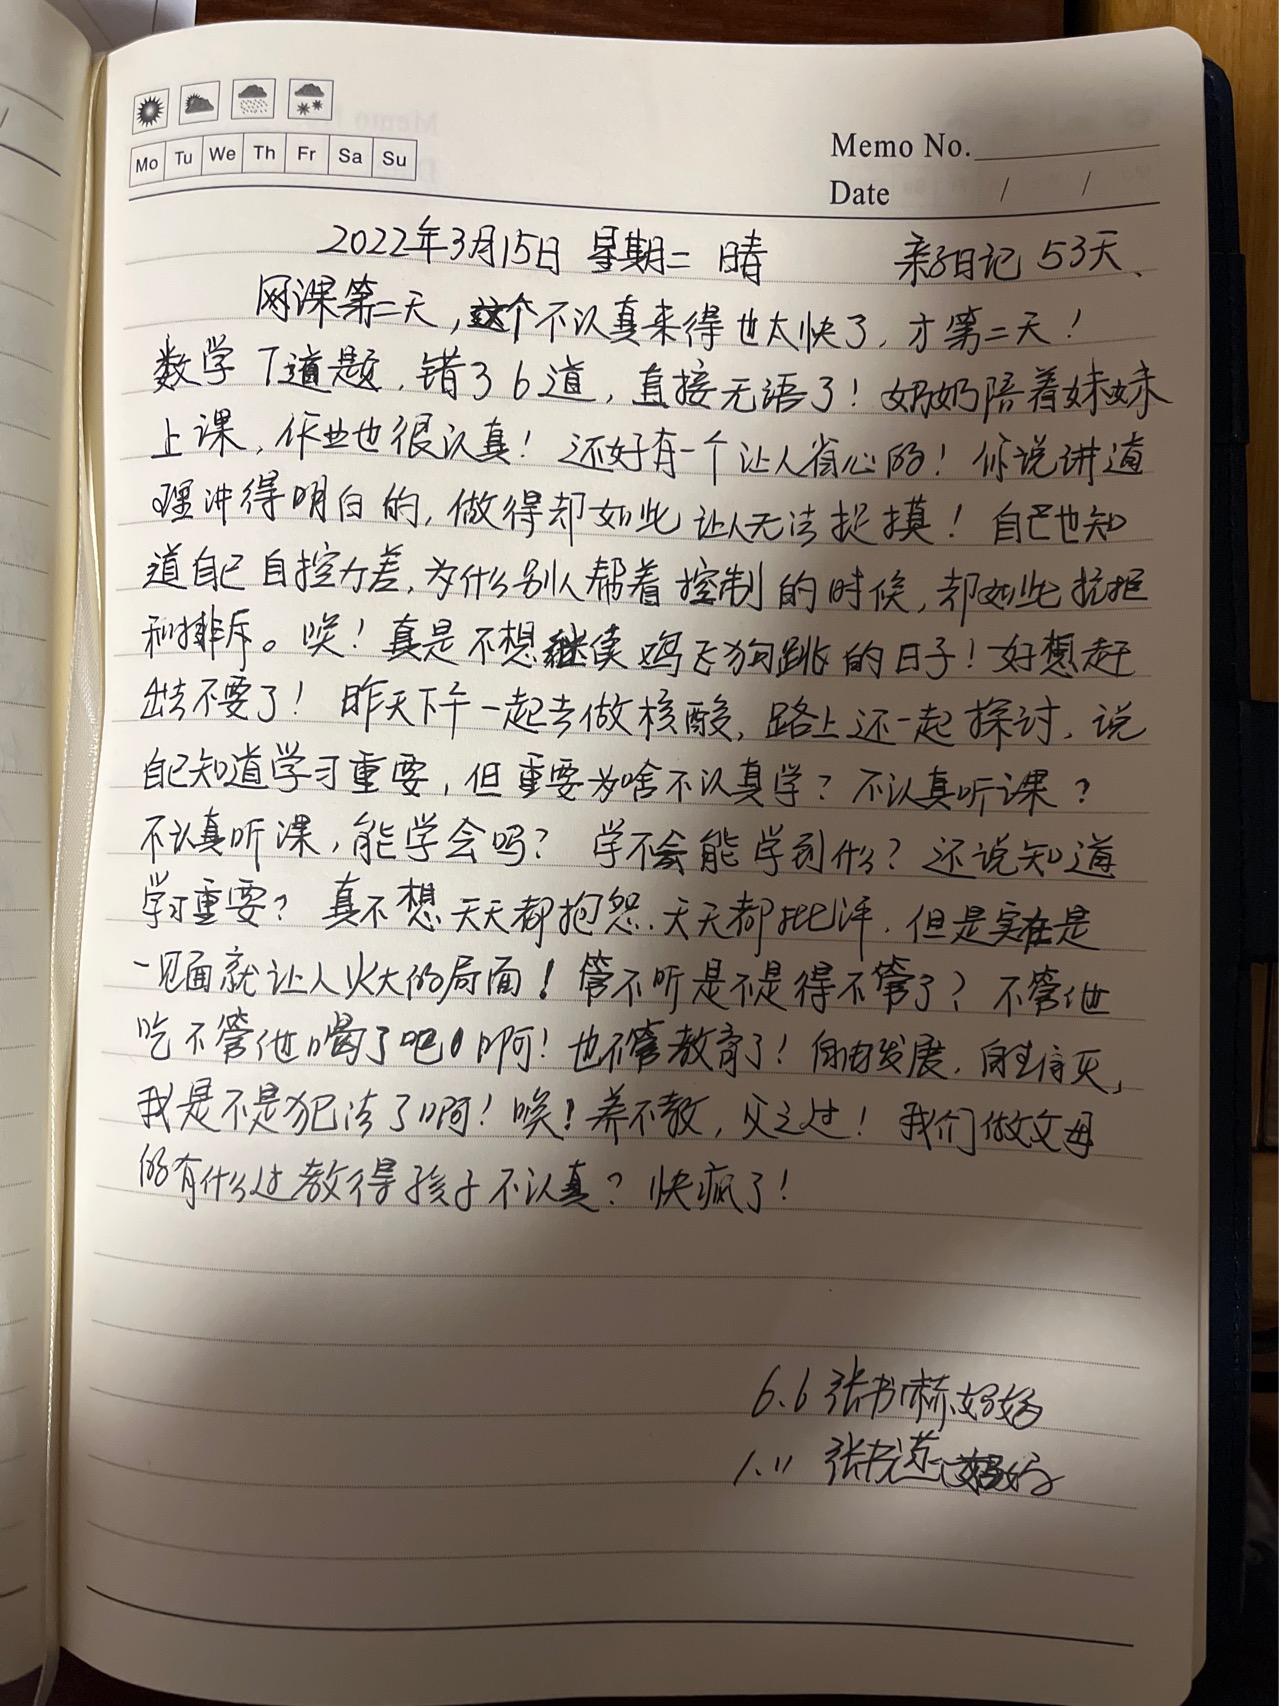 Mo Tu We Th Fr Sa Su
Memo No.
Date / /
2022年3月15日 星期二 晴 亲子日记 53天、
网课第二天，这个不认真来得也太快了，才第二天！
数学 道题，错了6道，直接无语了！奶奶陪着妹妹
上课，作业也很认真！还好有一个让人省心的！你说讲道
理讲得明白的，做得却如此让人无法捉摸！自己也知
道自己自控力差，为什么别人帮着控制的时候，却如此抗拒
和排斥。唉！真是不想继续鸡飞狗跳的日子！好想赶
出去不要了！昨天下午一起去做核酸，路上还一起探讨，说
自己知道学习重要，但重要为啥不认真学？不认真听课？
不认真听课，能学会吗？学不会能学到什么？还说知道
学习重要？真不想天天都抱怨、天天都批评，但是实在是
一见面就让人火大的局面！管不听是不是得不管了？不管他
吃不管他喝了吧！啊！也不管教育了！自由发展，自生自灭，
我是不是犯法了啊！唉！养不教，父之过！我们做父母
的有什么过教得孩子不认真？快疯了！
6.6 张书 妈妈
1.11 张书 妈妈